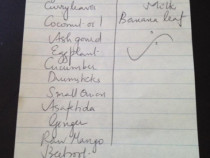 Curry leaves
Coconut oil
Ash gourd
Eggplant
Cucumber
Drumsticks
Small Onion
Asafetida
Ginger
Raw Mango
Beetroot
Milk
Banana leaf